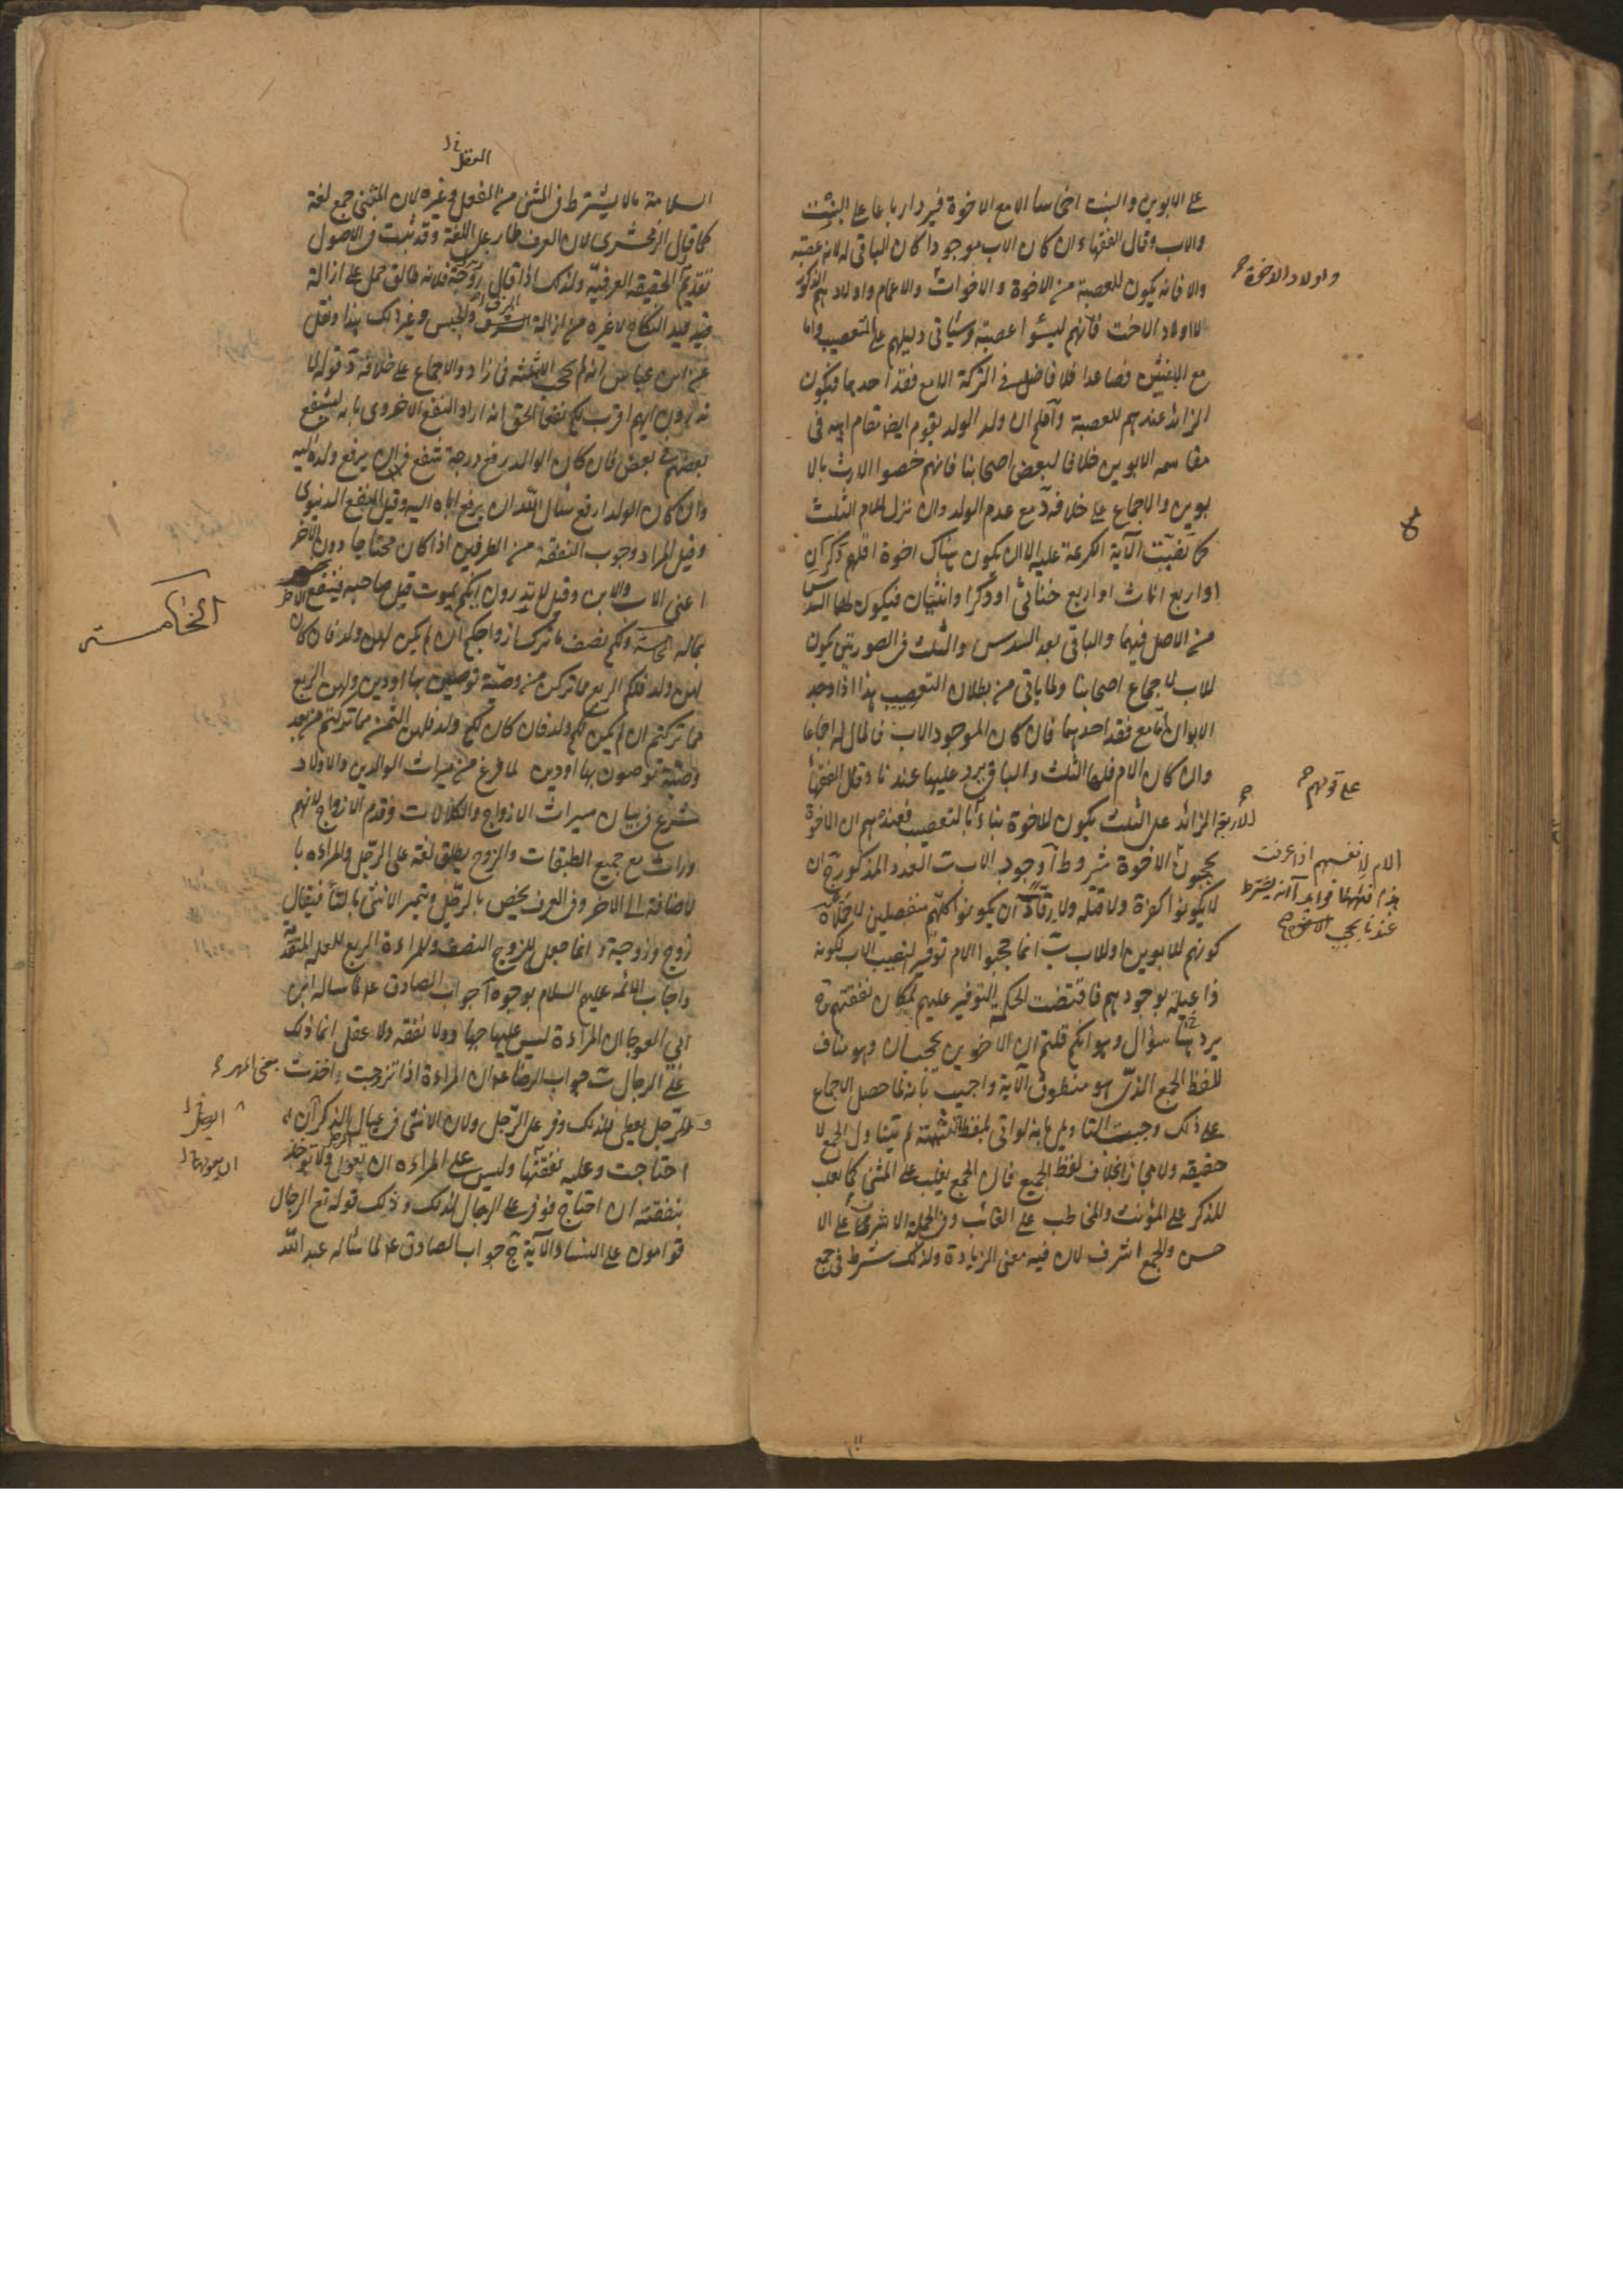 على الابوين والبنت اخماسا الا مع الاخوة فيرد ارباعا على البنت
والاب وقال الفقهاء ان كان الاب موجودا كان الباقى له لانه عصبة
والا فانه يكون للعصبة من الاخوة والاخوات والاعمام واولادهم الذكور
واولاد الاخوة
لا اولاد الاخت فانهم ليسوا عصبة وسياتى دليلهم على التعصيب واما
مع الابنتين فصاعدا فلا فاضل فى التركة الا مع فقد احدهما فيكون
الزائد عندهم للعصبة واعلم ان ولد الولد يقوم ايضا مقام ابيه فى
مقاسمه الابوين خلافا لبعض اصحابنا فانهم خصوا الارث بالا
بوين والاجماع على خلافه د مع عدم الولد وان نزل للام الثلث
كما تضمنت الآية الكريمة عليه الا ان يكون هناك اخوة اقلهم ذكران
او اربع اناث او اربع خناثى او ذكرا وانثيان فيكون لها السدس
من الاصل فيهما والباقى بعد السدس والثلث فى الصورتين يكون
للاب لاجماع اصحابنا ولما ياتى من بطلان التعصيب هذا اذا وجد
الابوان اما مع فقد احدهما فان كان الموجود الاب فالمال له اجماعا
وان كان الام فلها الثلث والباقى يرد عليها عندنا وقال الفقهاء
على قولهم
الزائد على الثلث يكون للاخوة بناءا بالتعصيب فعندهم ان الاخوة
الام لانفسهم اذا عرفت
هذا فههنا فوايد آ انه يشترط
عندنا
يحجبون الاخوة شروط آ وجود الاب ب العدد المذكور ج ان
لا يكونوا كفرة ولا قتله ولا رقا د ان يكونوا كلهم منفصلين لا حملا ه
كونهم للابوين او للاب ب انما حجبوا الام توفيرا لنصيب الاب لكونه
ذا عيلة بوجودهم فاقتضت الحكمة التوفير عليهم لمكان نفقتهم ج
يرد هنا سؤال وهو انكم قلتم ان الاخوين يحجبان وهو مناف
للفظ الجمع الذى هو منطوق الآية واجيب بانه لما حصل الاجماع
على ذلك وجبت التاويل بانه لو اتى بلفظ التثنية لم يتناول الجمع لا
حقيقه ولا مجازا بخلاف لفظ الجمع فان الجمع يغلب على المثنى كما يغلب
المذكر على المؤنث والمخاطب على الغائب وفى الجملة الاشرف على الا
حسن والجمع اشرف لان فيه معنى الزيادة ولذلك شرط فى جمع
العقل
السلامة ما لا يشترط فى المثنى من العقل وغيره لان المثنى جمع لغة
كما قال الزمخشرى لان العرف طار على اللغة وقد ثبت فى الاصول
تقديم الحقيقه العرفيه ولذلك اذا قال زوجة فلانه طالق حمل على ازالة
قيد النكاح لا غيره من ازالة والحبس وغير ذلك هذا ونقل
عن ابن عباس انه لم يحجب الا بثلثة فما زاد والاجماع على خلافه د قوله لا
تدرون ايهم اقرب لكم نفعا الحق انه اراد النفع الاخروى بانه يشفع
بعضهم فى بعض فان كان الوالد ارفع درجة شفع فى ان يرفع ولده اليه
وان كان الولد ارفع سأل الله ان يرفع اباه اليه وقيل النفع الدنيوى
وقيل المراد وجوب النفقة من الطرفين اذا كان محتاجا دون الاخر
اعنى الاب والابن وقيل لا تدرون ايكم يموت قبل صاحبه فينتفع الاخر
الخامسة
بماله ولكم نصف ما ترك ازواجكم ان لم يكن لهن ولد فان كان
لهن ولد فلكم الربع مما تركن من بعد وصية يوصين بها او دين ولهن الربع
مما تركتم ان لم يكن لكم ولد فان كان لكم ولد فلهن الثمن مما تركتم من بعد
وصية توصون بها او دين لما فرغ من ميراث الوالدين والاولاد
شرع فى بيان ميراث الازواج والكلالات وقدم الازواج لانهم
وراث مع جميع الطبقات والزوج يطلق لغة على الرجل والمراءه با
لاضافة الى الاخر وفى العرف يخص بالرجل ويتميز الانثى بالتاء فيقال
زوج وزوجة وانما جعل للزوج النصف وللمراءة الربع للعلة المتقدمة
واجاب الائمه عليهم السلام بوجوه آ جواب الصادق ع لما ساله ابن
ابى العوجا ان المراءة ليس عليها جهاد ولا نفقه ولا عقل انما ذلك
على الرجال ب جواب الرضا ع ان المراءة اذا تزوجت اخذت يعنى المهر
والرجل يعطى فلذلك وفر على الرجل ولان الانثى فى عيال الذكر ان
احتاجت وعليه نفقتها وليس على المراءه ان تعول الرجل ولا تؤخذ
بنفقته ان احتاج فوفر على الرجال لذلك وذلك قوله تع الرجال
قوامون على النساء الآية ج جواب الصادق ع لما سأله عبد الله